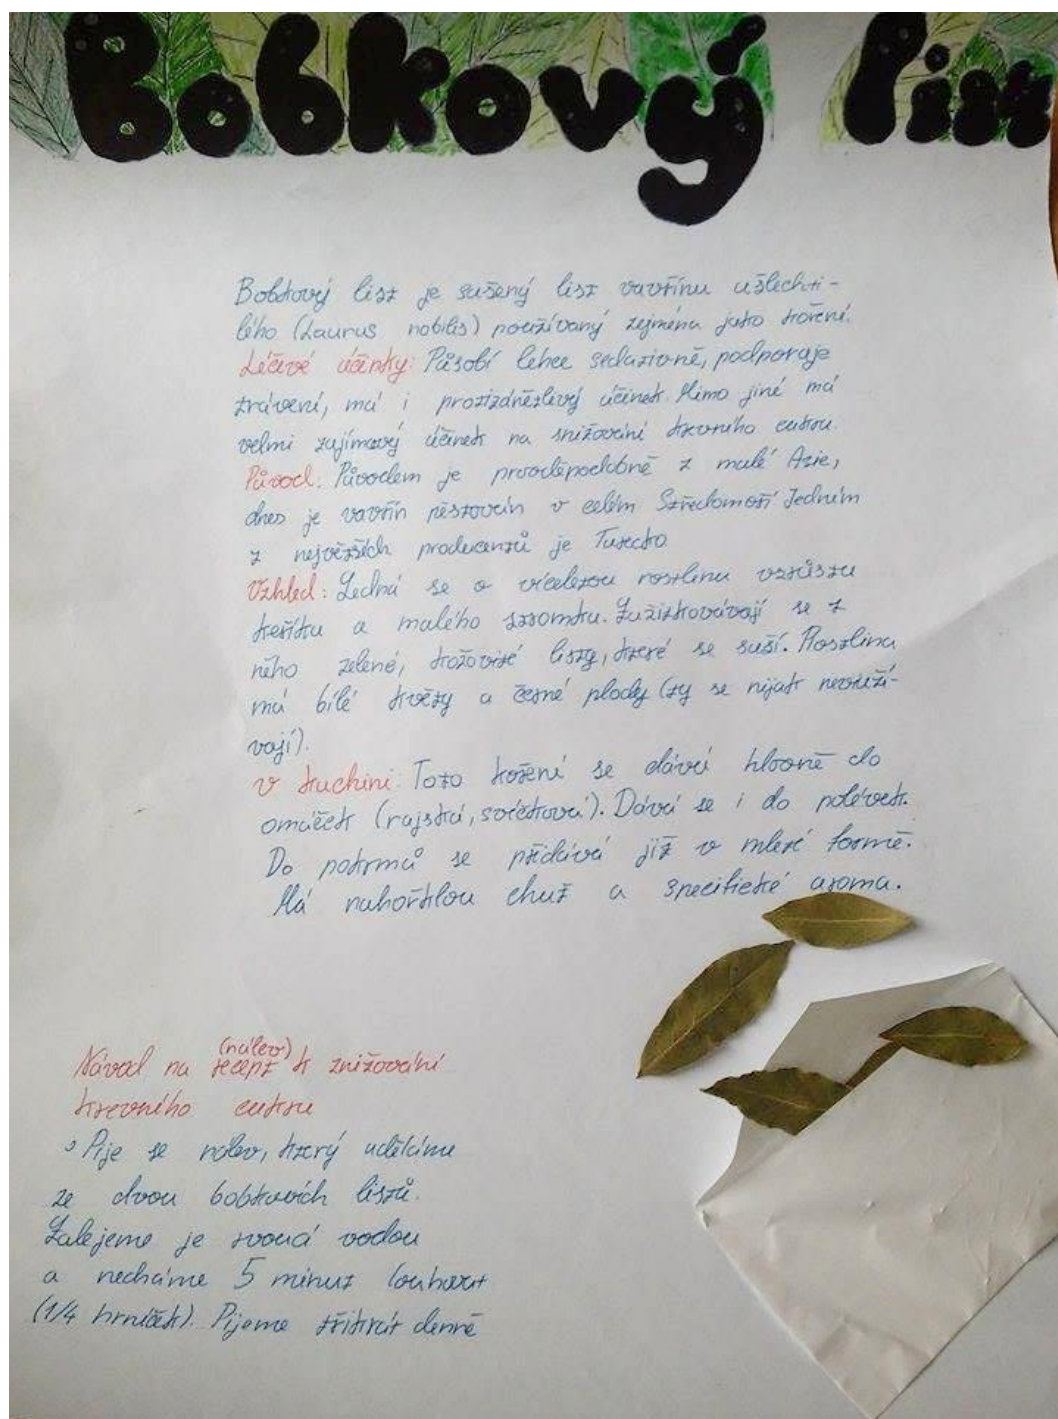 Bobkový list
Bobkový list je sušený list vavřínu ušlechti-
lého (Laurus nobilis) používaný zejména jako koření.
Léčivé účinky: Působí lehce sedativně, podporuje
trávení, má i protizánětlivý účinek. Mimo jiné má
velmi zajímavý účinek na snižování krevního cukru.
Původ: Původem je pravděpodobně z malé Asie,
dnes je vavřín pěstován v celém Středomoří Jedním
z největších producentů je Turecko
Vzhled: Jedná se o víceletou rostlinu vzrůstu
keříku a malého stromku. Zužitkovávají se z
něho zelené, kožovité listy, které se suší. Rostlina
má bílé květy a černé plody (ty se nijak nevyuží-
vají).
V kuchini: Toto koření se dává hlavně do
omáček (rajská, svíčková). Dává se i do polévek.
Do pokrmů se přidává již v mleté formě.
Má nahořklou chuť a specifické aroma.
Návod na recept (nálev) k znižování
krevního cukru
Pije se nálev, který uděláme
ze dvou bobkových listů.
Zalejeme je vroucí vodou
a necháme 5 minut louhovat
(1/4 hrníček). Pijeme třikrát denně